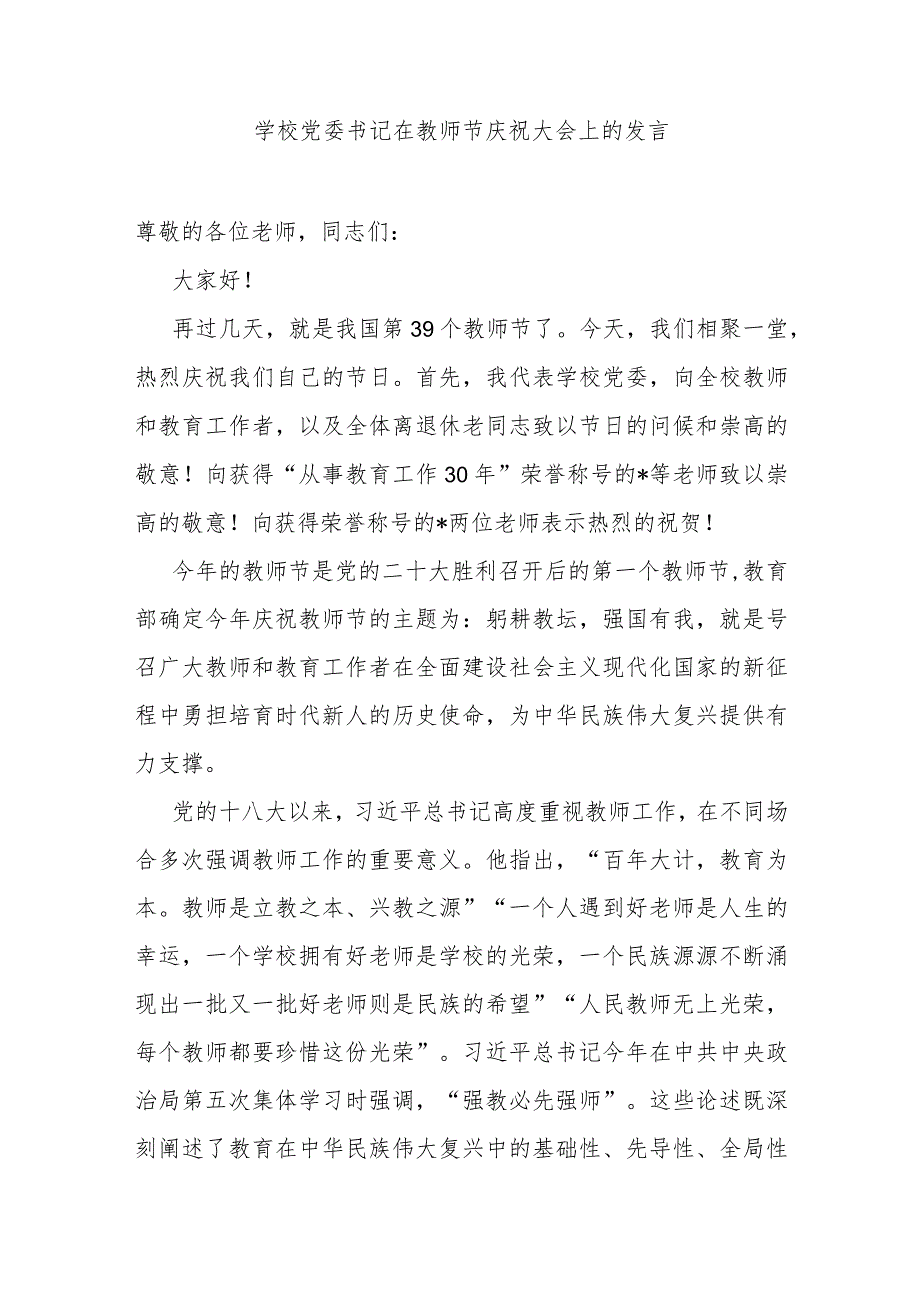 学校党委书记在教师节庆祝大会上的发言
尊敬的各位老师，同志们：
大家好！
再过几天，就是我国第39个教师节了。今天，我们相聚一堂，
热烈庆祝我们自己的节日。首先，我代表学校党委，向全校教师
和教育工作者，以及全体离退休老同志致以节日的问候和崇高的
敬意！向获得“从事教育工作30年”荣誉称号的*等老师致以崇
高的敬意！向获得荣誉称号的*两位老师表示热烈的祝贺！
今年的教师节是党的二十大胜利召开后的第一个教师节,教育
部确定今年庆祝教师节的主题为：躬耕教坛，强国有我，就是号
召广大教师和教育工作者在全面建设社会主义现代化国家的新征
程中勇担培育时代新人的历史使命，为中华民族伟大复兴提供有
力支撑。
党的十八大以来，习近平总书记高度重视教师工作，在不同场
合多次强调教师工作的重要意义。他指出，“百年大计，教育为
本。教师是立教之本、兴教之源”“一个人遇到好老师是人生的
幸运，一个学校拥有好老师是学校的光荣，一个民族源源不断涌
现出一批又一批好老师则是民族的希望”“人民教师无上光荣，
每个教师都要珍惜这份光荣”。习近平总书记今年在中共中央政
治局第五次集体学习时强调，“强教必先强师”。这些论述既深
刻阐述了教育在中华民族伟大复兴中的基础性、先导性、全局性